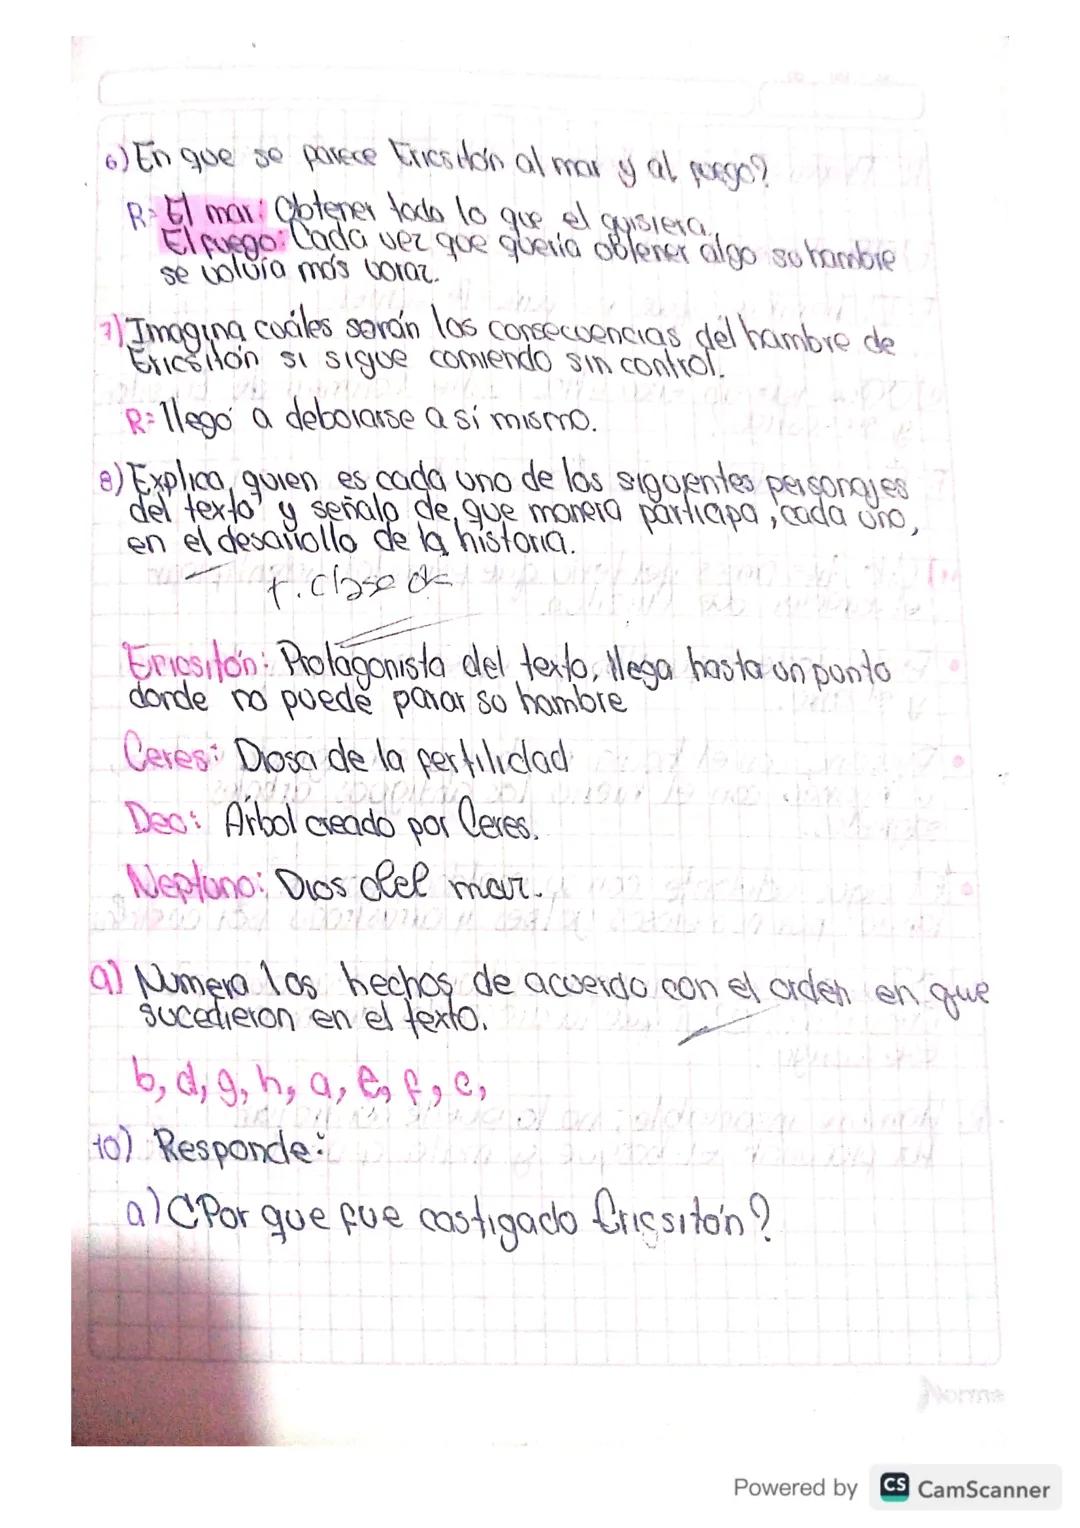 6) En que se parece Ericsitón al mar y al fuego?
R= El mar: Obtener todo lo que el quisiera.
El fuego: Cada vez que quería obtener algo su hambre
se volvía más voraz.
7) Imagina cuáles serán las consecuencias del hambre de
Ericsitón si sigue comiendo sin control.
R= llegó a deborarse a sí mismo.
8) Explica quien es cada uno de los siguientes personajes
del texto y señala de que manera participa, cada uno,
en el desarrollo de la historia.
f. clase
Ericsitón: Protagonista del texto, llega hasta un punto
donde no puede parar su hambre
Ceres: Diosa de la fertilidad
Deo: Árbol creado por Ceres.
Neptuno: Dios del mar.
9) Numera los hechos de acuerdo con el orden en que
sucedieron en el texto.
b, d, g, h, a, e, f, c,
10) Responde:
a) ¿Por que fue castigado Ericsitón?
Norma
Powered by CS CamScanner